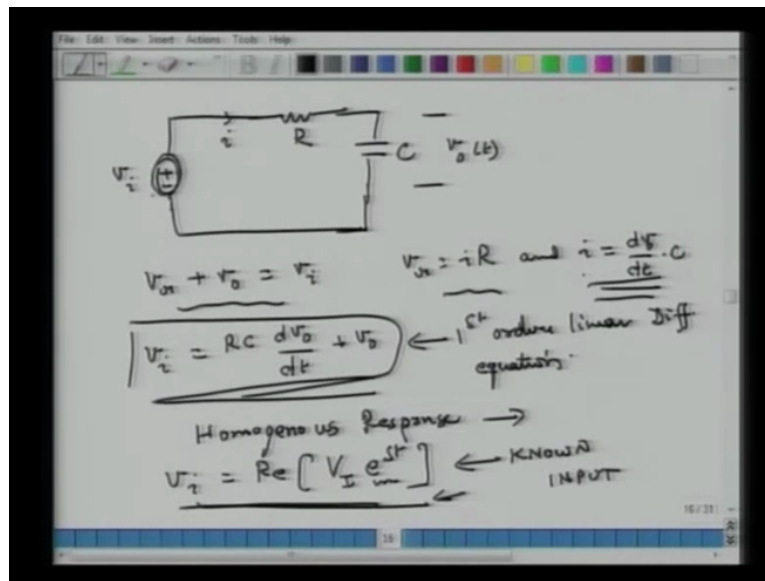 File Edit View Insert Actions Tools Help
B I
i R
v_i + - C v_o(t)
v_r + v_o = v_i v_r = iR and i = dv_o/dt . C
v_i = RC dv_o/dt + v_o ← 1st order linear Diff
equation.
Homogenous Response →
v_i = Re [ V_I e^st ] ← KNOWN
INPUT
16/31
16